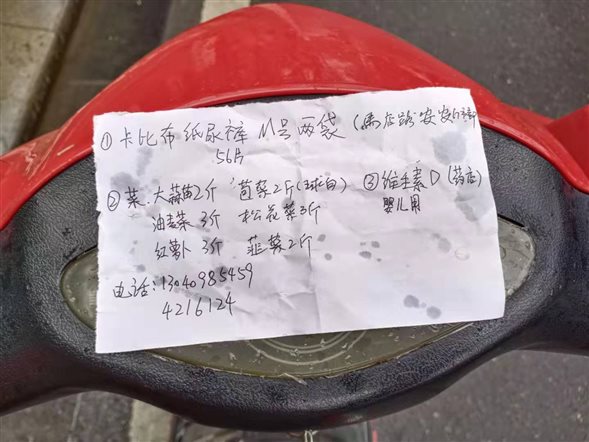 ① 卡比布纸尿裤 M号 两袋 (馬店路安安
56片
② 菜. 大蒜苗2斤 茴菜2斤
油麦菜 3斤 松花菜3斤
红萝卜 3斤 韮菜2斤
③ 维生素D (药店)
婴儿用
电话:13040985459
4216124